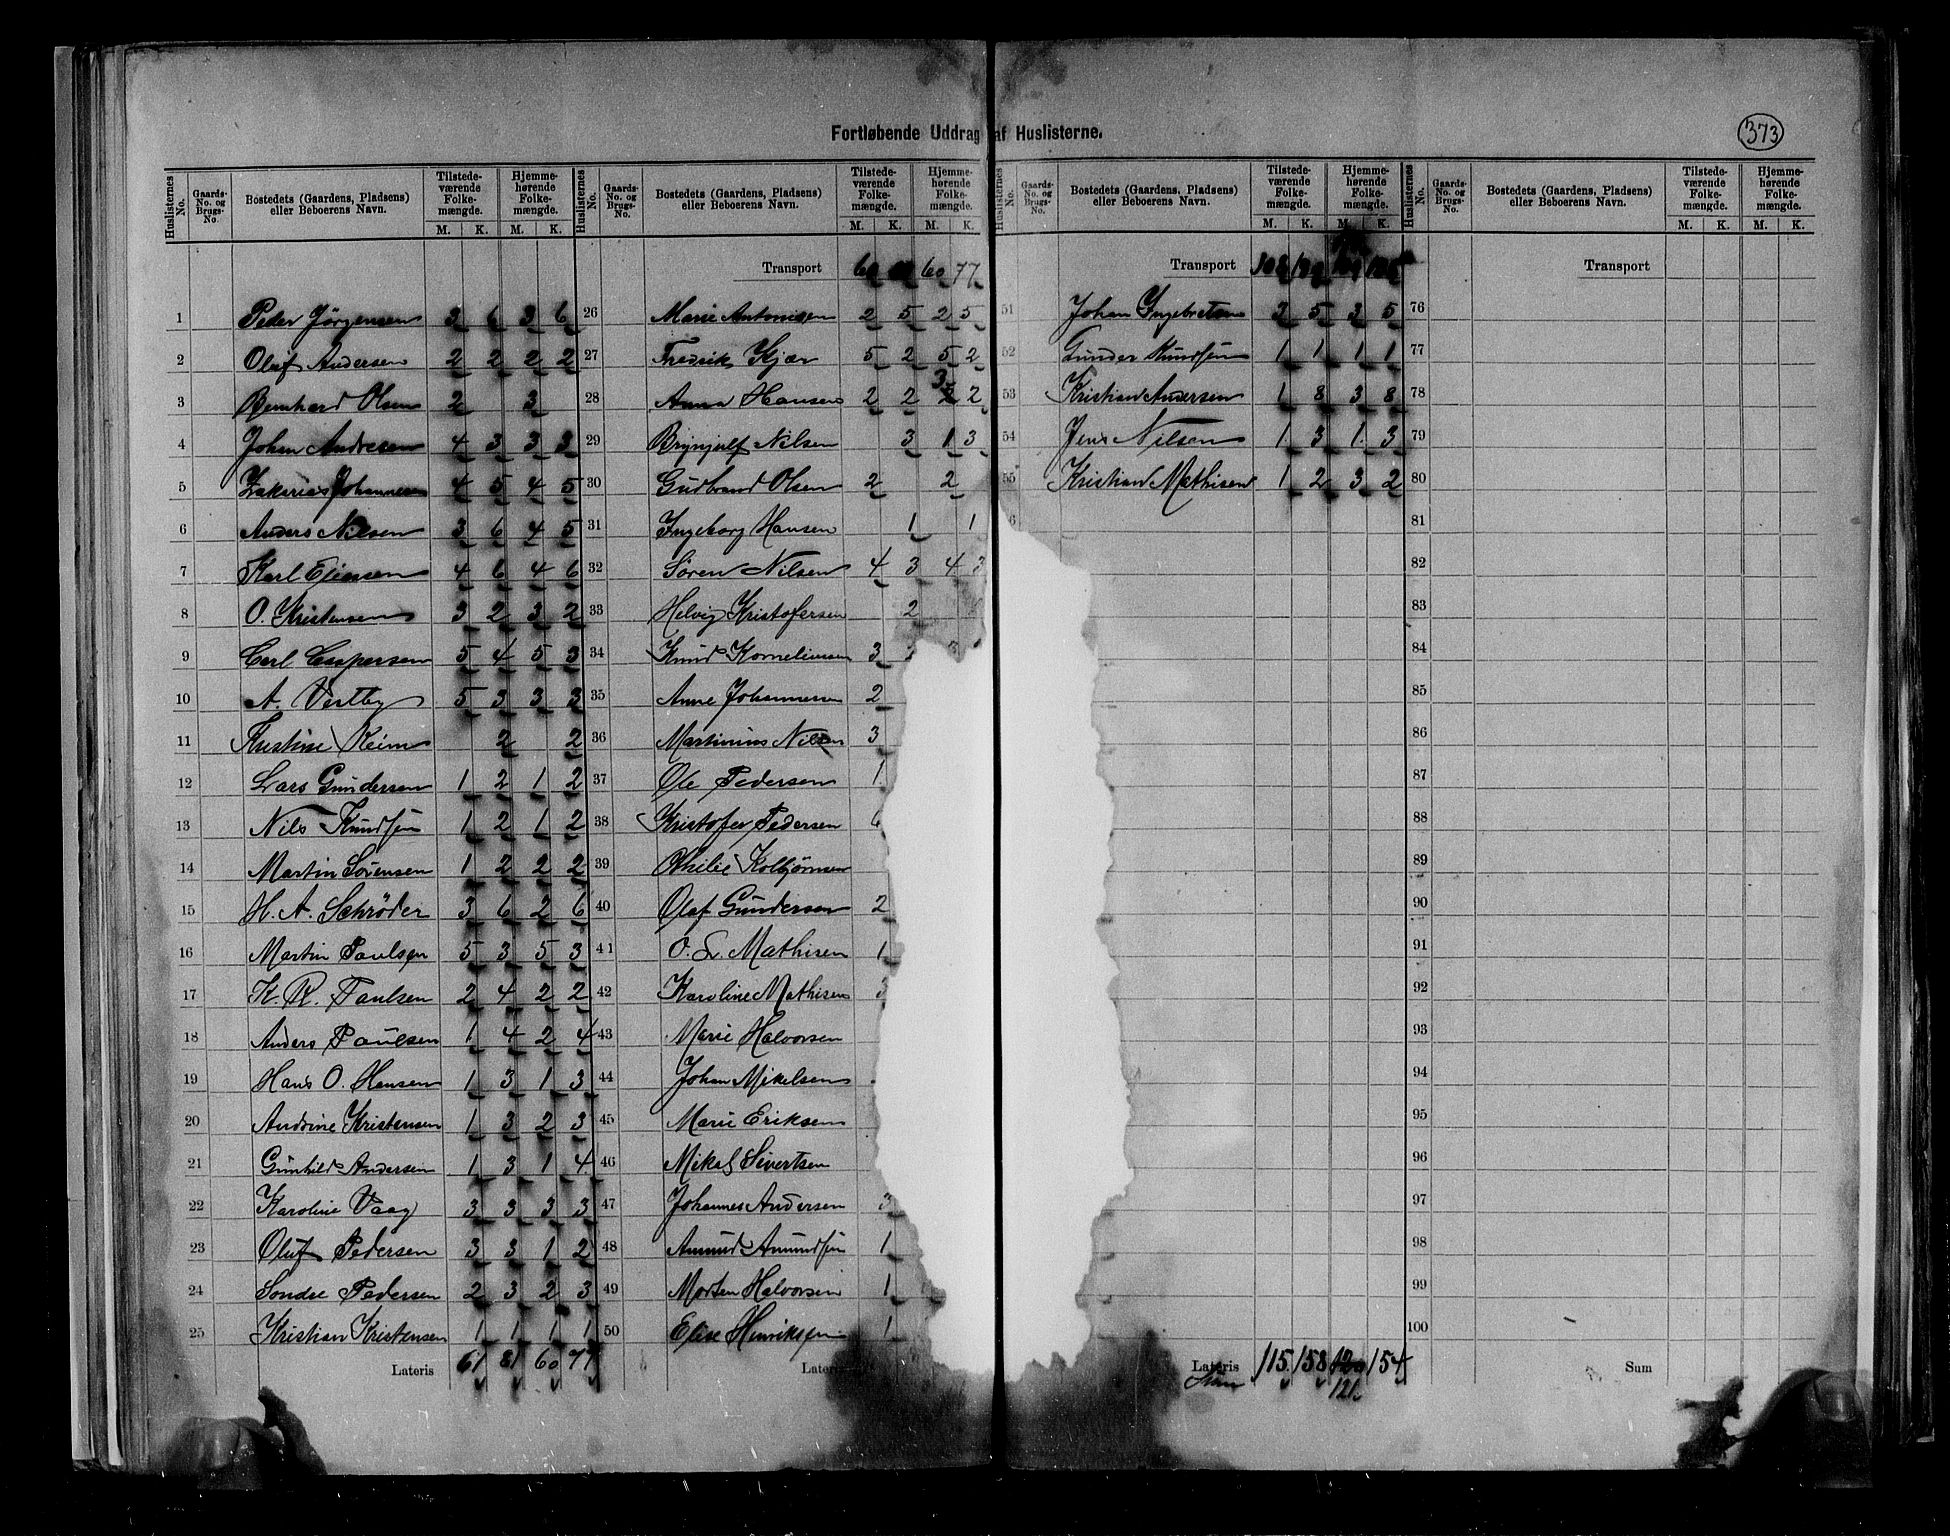 Fortløbende Uddrag af Huslisterne.
373
Huslisternes No. Gaards-No. og Brugs-No. Bostedets (Gaardens, Pladsens) eller Beboerens Navn. Tilstedeværende Folkemængde. M. K. Hjemmehørende Folkemængde. M. K.
1 Peder Jörgensen 3 6 3 6
2 Oluf Andersen 2 2 2 2
3 Bernhard Olsen 2 3
4 Johan Andresen 4 3 3 3
5 Zakarias Johannesen 4 5 4 5
6 Anders Nilsen 3 6 4 5
7 Karl Eliassen 4 6 4 6
8 O. Kristensen 3 2 3 2
9 Carl Caspersen 5 4 5 3
10 A. Vestby 5 3 3 3
11 Kristine Reim 2 2
12 Lars Gundersen 1 2 1 2
13 Nils Knudsen 1 2 1 2
14 Martin Sörensen 1 2 2 2
15 H. A. Schrøder 3 6 2 6
16 Martin Paulsen 5 3 5 3
17 K. R. Paulsen 2 4 2 2
18 Anders Paulsen 1 4 2 4
19 Hans O. Hansen 1 3 1 3
20 Andrine Kristensen 1 3 2 3
21 Gunhild Andersen 1 3 1 4
22 Karoline Vaag 3 3 3 3
23 Oluf Pedersen 3 3 1 2
24 Sondre Pedersen 2 3 2 3
25 Kristian Kristensen 1 1 1 1
Lateris 61 81 60 77
Huslisternes No. Gaards-No. og Brugs-No. Bostedets (Gaardens, Pladsens) eller Beboerens Navn. Tilstedeværende Folkemængde. M. K. Hjemmehørende Folkemængde. M. K.
Transport 60 77
26 Marie Antonisen 2 5 2 5
27 Fredrik Kjær 5 2 5 2
28 Anna Hansen 2 2 3 2
29 Brynjulf Nilsen 3 1 3
30 Gudbrand Olsen 2 2
31 Ingeborg Hansen 1 1
32 Sören Nilsen 4 3 4 3
33 Helvig Kristofersen 2
34 Knud Korneliussen 3
35 Anne Johannesen 2
36 Martinius Nilsen 3
37 Ole Pedersen 1
38 Kristofer Pedersen 6
39 Othilie Kolbjörnsen
40 Olaf Gundersen 2
41 O. L. Mathisen 1
42 Karoline Mathisen 3
43 Marie Halvorsen
44 Johan Mikelsen
45 Marie Eriksen
46 Mikal Sivertsen
47 Johannes Andersen 3
48 Amund Amundsen 1
49 Morten Halvorsen 1
50 Elise Henriksen 1
Lateris
Huslisternes No. Gaards-No. og Brugs-No. Bostedets (Gaardens, Pladsens) eller Beboerens Navn. Tilstedeværende Folkemængde. M. K. Hjemmehørende Folkemængde. M. K.
Transport 108
51 Johan Ingebretsen 3 5 3 5
52 Gunder Knudsen 1 1 1 1
53 Kristian Andersen 1 8 3 8
54 Jens Nilsen 1 3 1 3
55 Kristian Mathisen 1 2 3 2
Lateris 115 158 120 154
Sum 121
Huslisternes No. Gaards-No. og Brugs-No. Bostedets (Gaardens, Pladsens) eller Beboerens Navn. Tilstedeværende Folkemængde. M. K. Hjemmehørende Folkemængde. M. K.
Transport
76
77
78
79
80
81
82
83
84
85
86
87
88
89
90
91
92
93
94
95
96
97
98
99
100
Sum